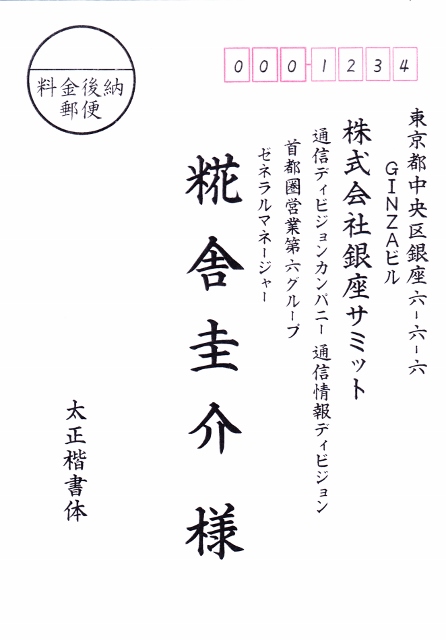 料金後納
郵便
000-1234
東京都中央区銀座六-六-六
GINZAビル
株式会社銀座サミット
通信ディビジョンカンパニー 通信情報ディビジョン
首都圏営業第六グループ
ゼネラルマネージャー
糀舎圭介様
太正楷書体